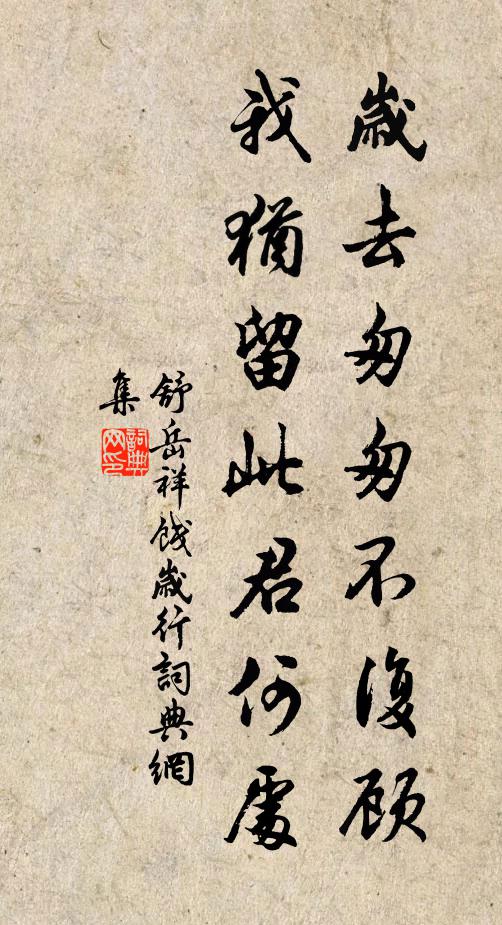 歲去匆匆不復顧
我猶留此君何處
舒岳祥餞歲行詞典網
集
詞典網印